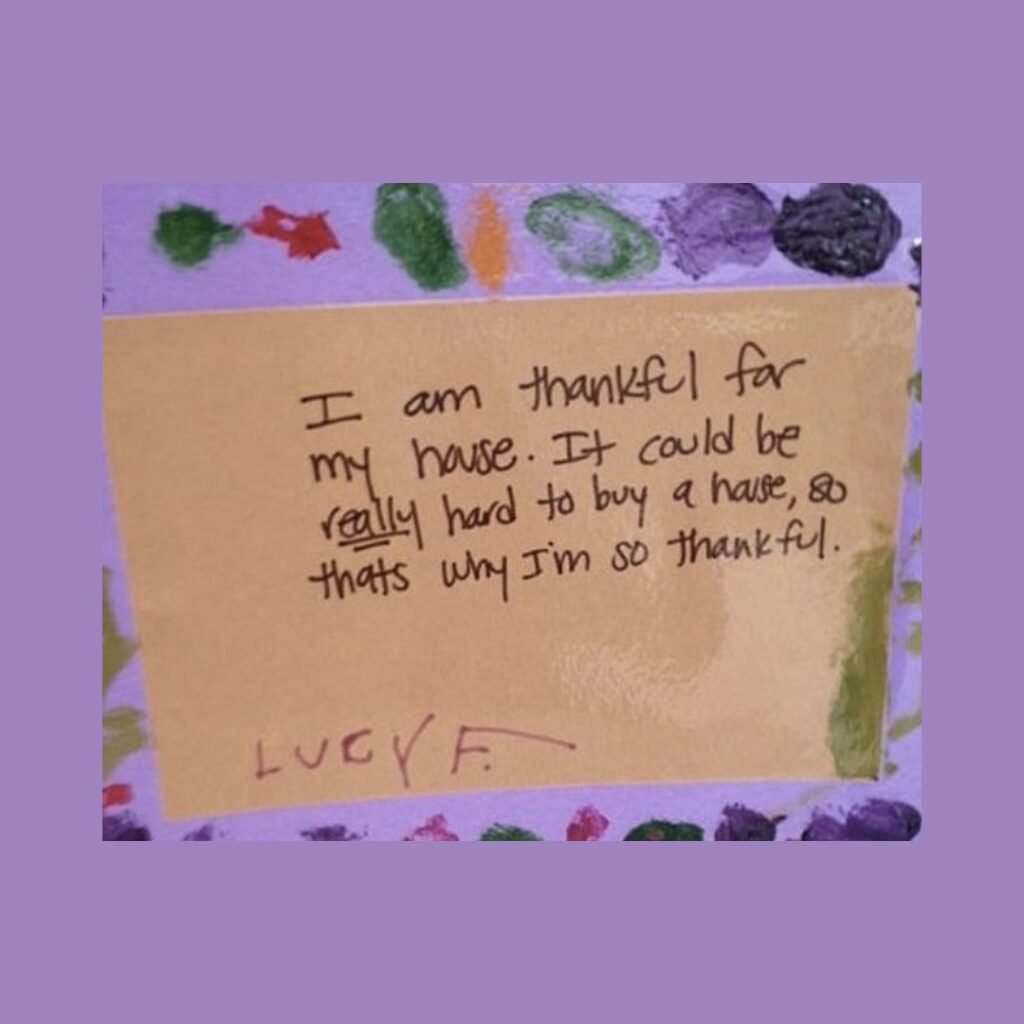 I am thankful for
my house. It could be
really hard to buy a house, so
thats why I'm so thankful.
LUCY F.